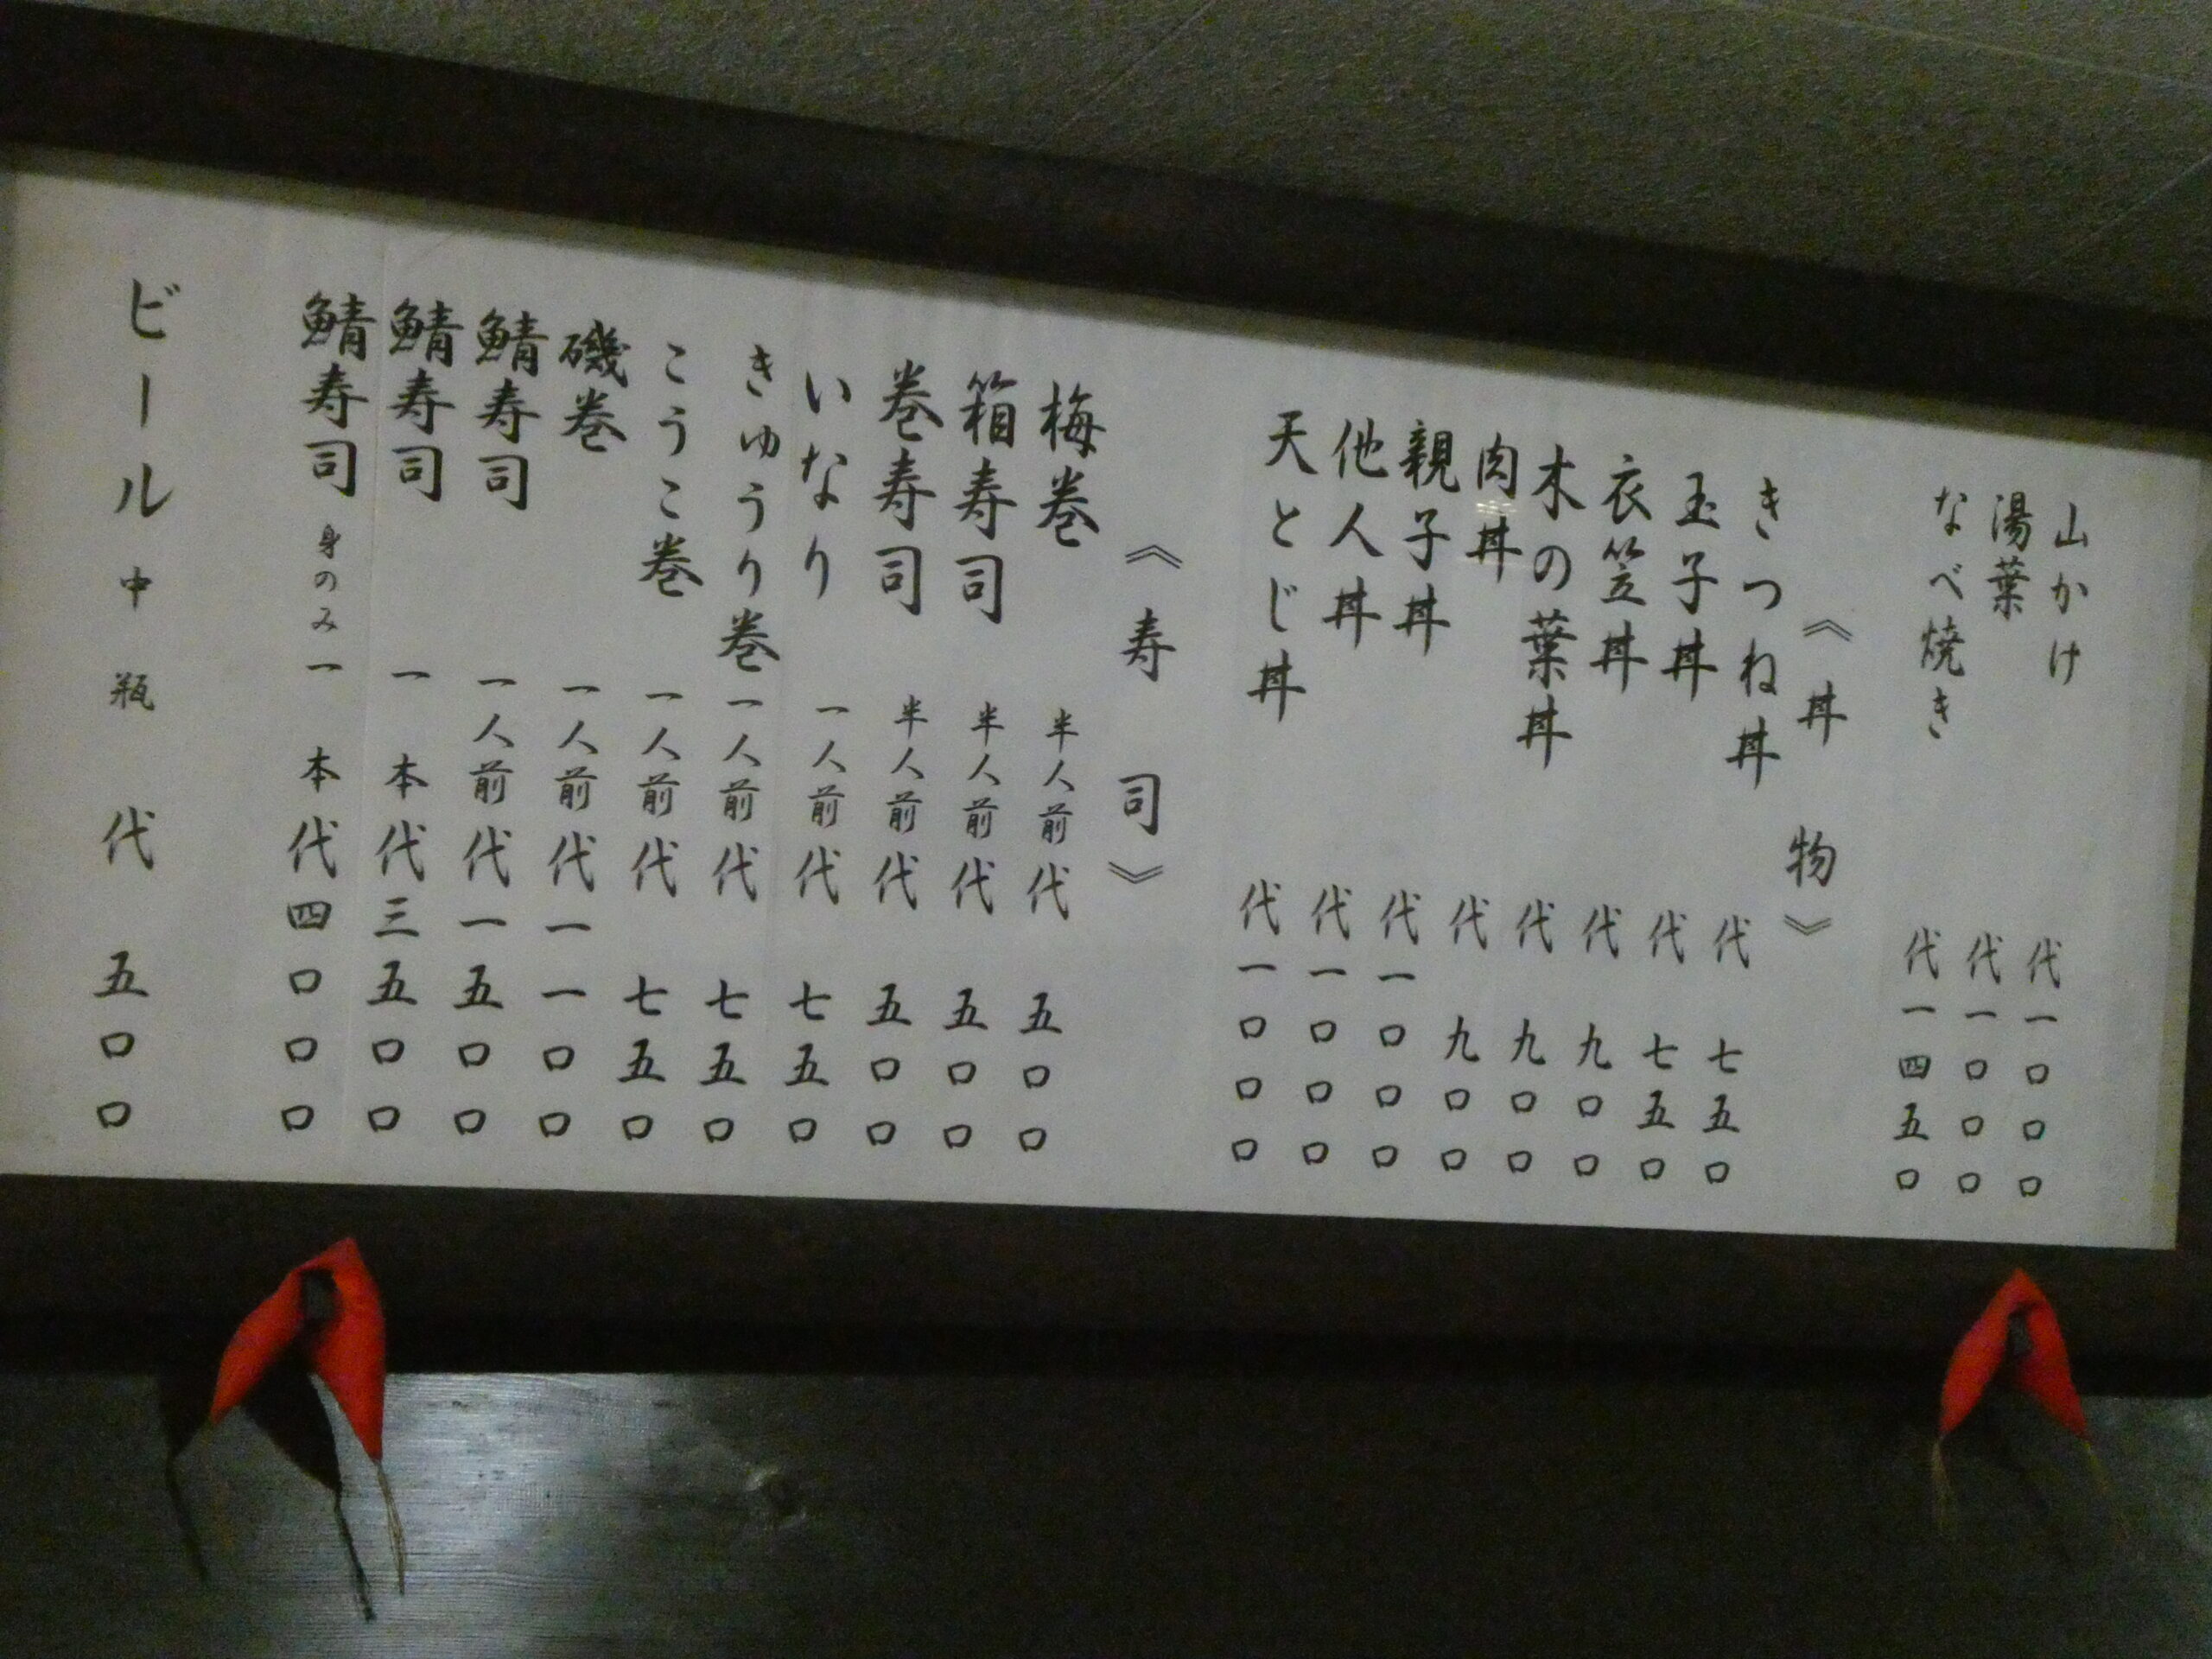 山かけ 代一〇〇〇
湯葉 代一〇〇〇
なべ焼き 代一四五〇
《丼物》
きつね丼 代 七五〇
玉子丼 代 七五〇
衣笠丼 代 九〇〇
木の葉丼 代 九〇〇
肉丼 代 九〇〇
親子丼 代一〇〇〇
他人丼 代一〇〇〇
天とじ丼 代一〇〇〇
《寿司》
梅巻 半人前 代 五〇〇
箱寿司 半人前 代 五〇〇
巻寿司 半人前 代 五〇〇
いなり 一人前 代 七五〇
きゅうり巻 一人前 代 七五〇
こうこ巻 一人前 代 七五〇
磯巻 一人前 代一一〇〇
鯖寿司 一人前 代一五〇〇
鯖寿司 一本 代三五〇〇
鯖寿司 身のみ 一本 代四〇〇〇
ビール 中瓶 代 五〇〇